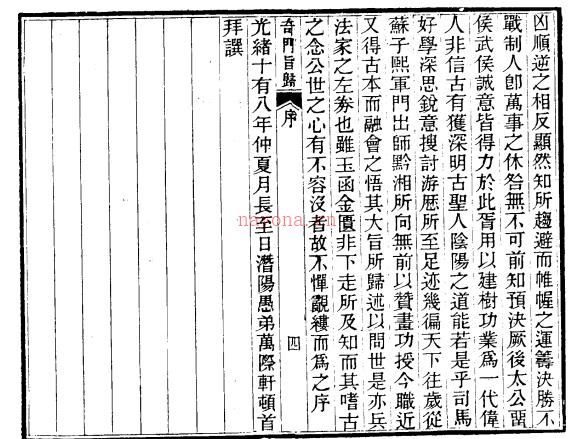 凶順逆之相反顯然知所趨避而帷幄之運籌決勝不
戰制人卽萬事之休咎無不可前知預決厥後太公留
侯武侯誠意皆得力於此胥用以建樹功業爲一代偉
人非信古有獲深明古聖人陰陽之道能若是乎司馬
好學深思銳意搜討游歷所至足迹幾徧天下往歲從
蘇子熙軍門出師黔湘所向無前以贊畫功授今職近
又得古本而融會之悟其大旨所歸述以問世是亦兵
法家之左劵也雖玉函金匱非下走所及知而其嗜古
之念公世之心有不容沒者故不憚覼縷而爲之序
奇門旨歸 序 四
光緒十有八年仲夏月長至日潛陽愚弟萬際軒頓首
拜譔
nayona.cn